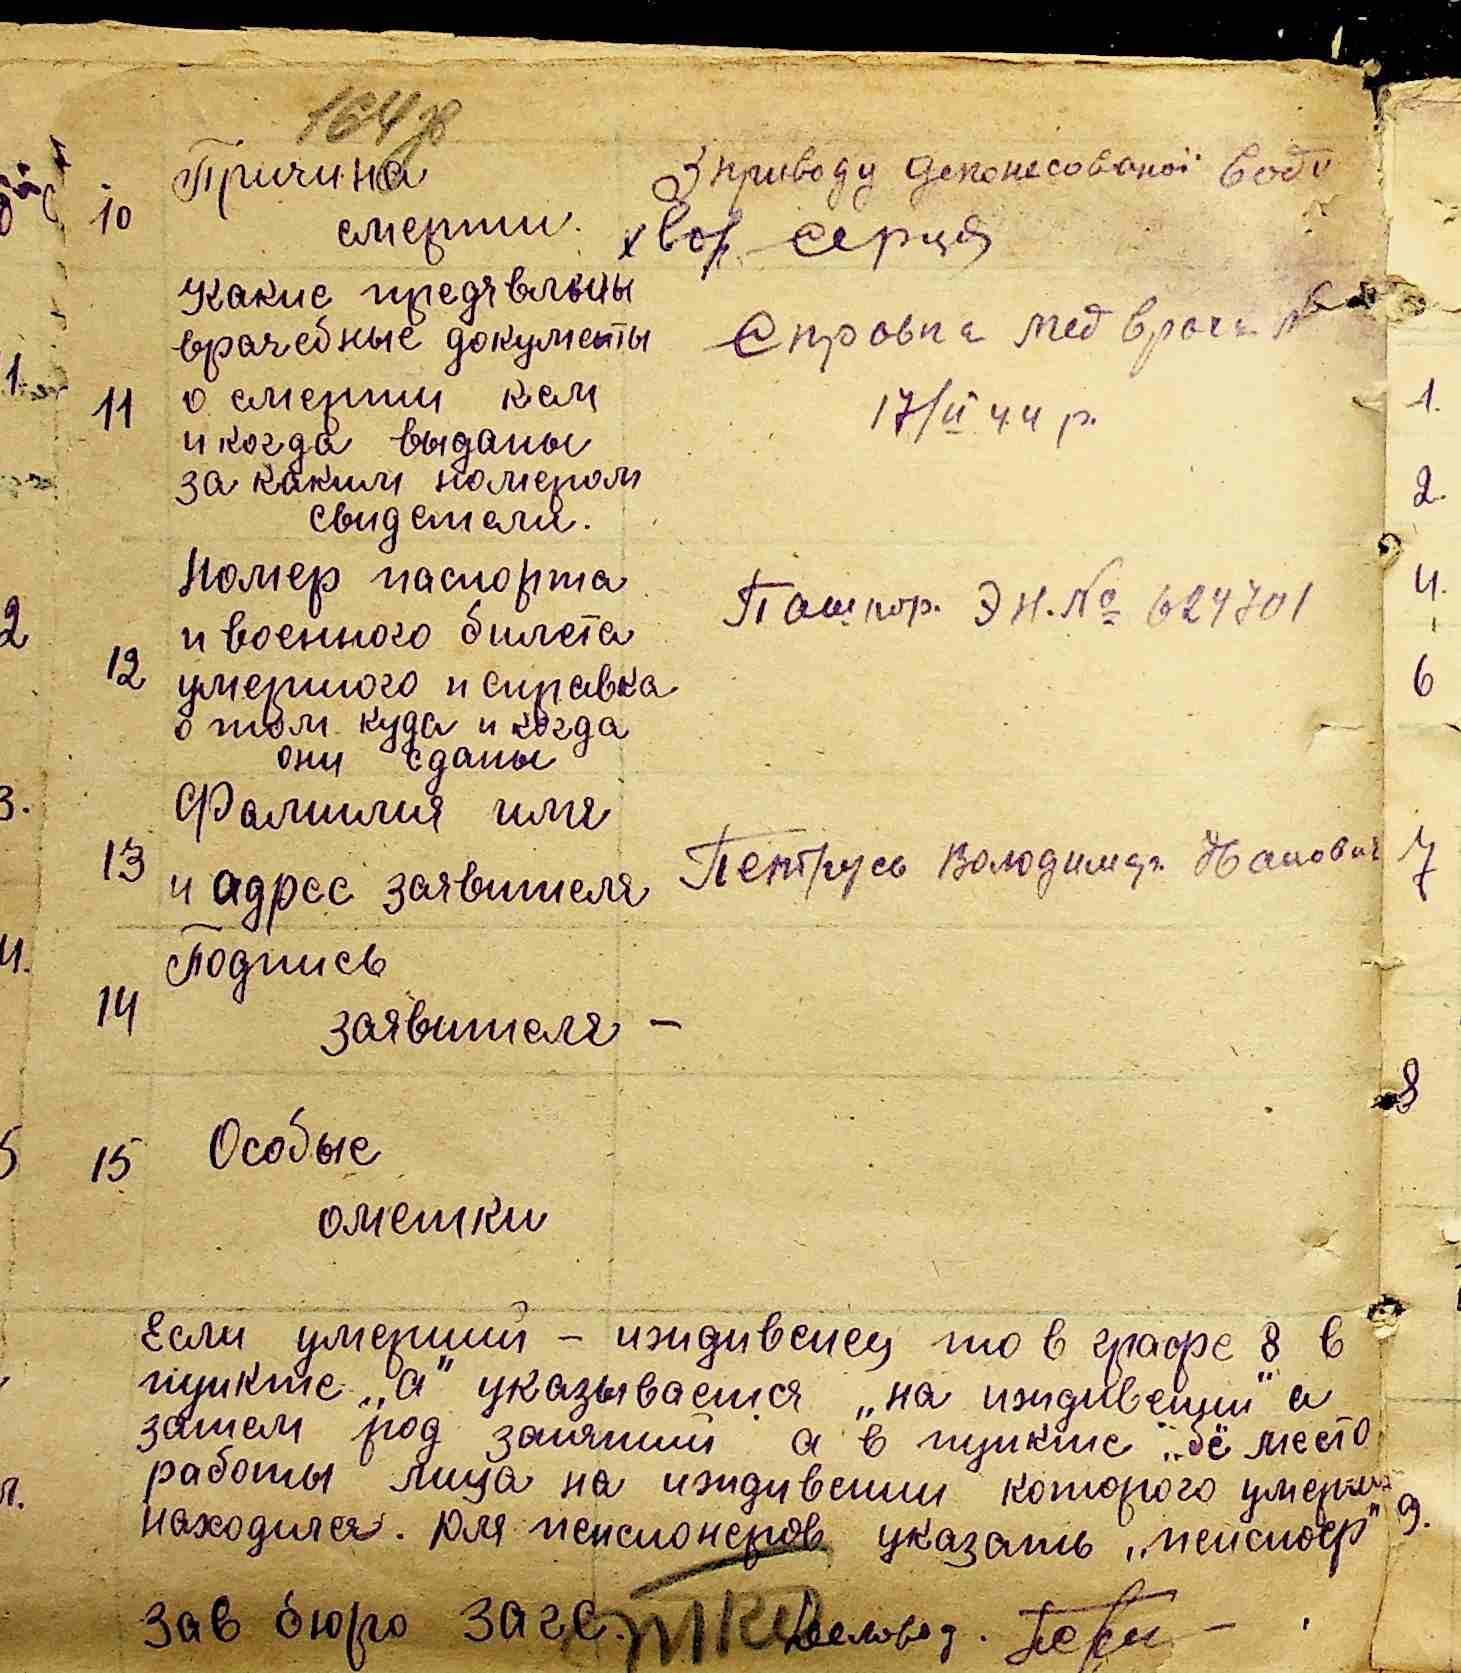 164
10 Причина З приводу
смерти. хвор серця
Какие предявлены
врачебные документы Справка мед врача №
11 о смерти кем 17/II 44 р.
и когда выданы
за каким номером
свидетели.
Номер паспорта Пашпор. ЭН. № 624701
и военного билета
12 умершого и справка
о том куда и когда
они сданы
Фамилия имя
13 и адрес заявителя Петрусь Володимир Иванович
Подпись
14 заявителя –
15 Особые
ометки
Если умерший – иждивенец то в графе 8 в
пункте „а" указывается „на иждивении" а
затем род занятий а в пункте „б" место
работы лица на иждивении которого умерший
находился. Для пенсионеров указать „пенсиоер"
Зав бюро загс. Деловод.
1.
2
3.
4.
5
1.
2.
4.
6
7
8
9.